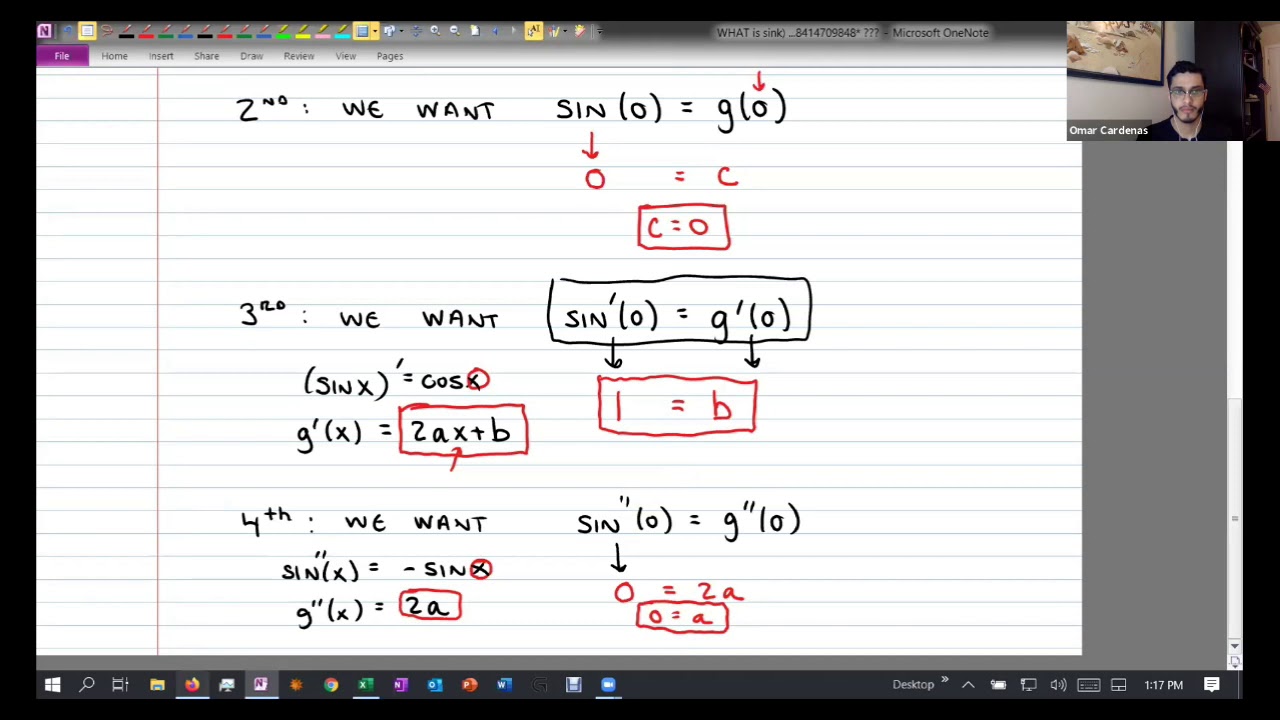 WHAT is sink) ...8414709848* ??? - Microsoft OneNote
File Home Insert Share Draw Review View Pages
Omar Cardenas
2ND : WE WANT SIN(0) = g(0)
0 = C
C = 0
3RD : WE WANT SIN'(0) = g'(0)
(SINX)' = COSX
1 = b
g'(x) = 2ax+b
4th : WE WANT SIN''(0) = g''(0)
SIN''(x) = -SINX
0 = 2a
g''(x) = 2a
0 = a
Desktop » 1:17 PM